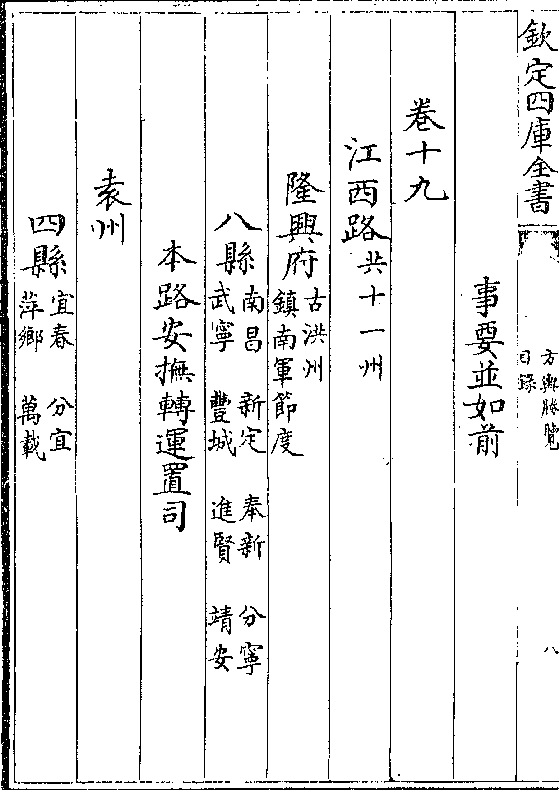 欽定四庫全書
方輿勝覽
目錄
八
事要並如前
卷十九
江西路共十一州
隆興府古洪州
鎮南軍節度
八縣南昌 新定 奉新 分寧
武寧 豐城 進賢 靖安
本路安撫轉運置司
袁州
四縣宜春 分宜
萍鄉 萬載